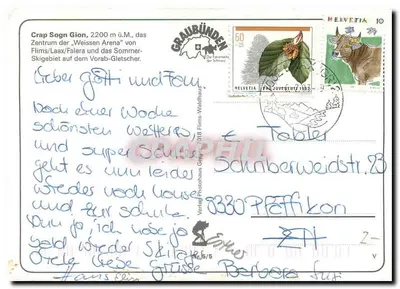 Crap Sogn Gion, 2200 m ü.M., das
Zentrum der „Weissen Arena" von
Flims/Laax/Falera und das Sommer-
Skigebiet auf dem Vorab-Gletscher.
GRAUBÜNDEN
50
HELVETIA PRO JUVENTUTE
HELVETIA 10
Lieber Götti und Fam
Nach einer Woche
schönsten Wetters,
und super Schnee
geht es nun leider
wieder nach hause
und zur schule.
ja, ich habe ja
bald wieder
liebe Grüsse
Tobler
8330 Pfäffikon
ZH
Esther
Barbara
Verlag Photohaus 7018 Flims-Waldhaus
2-
V